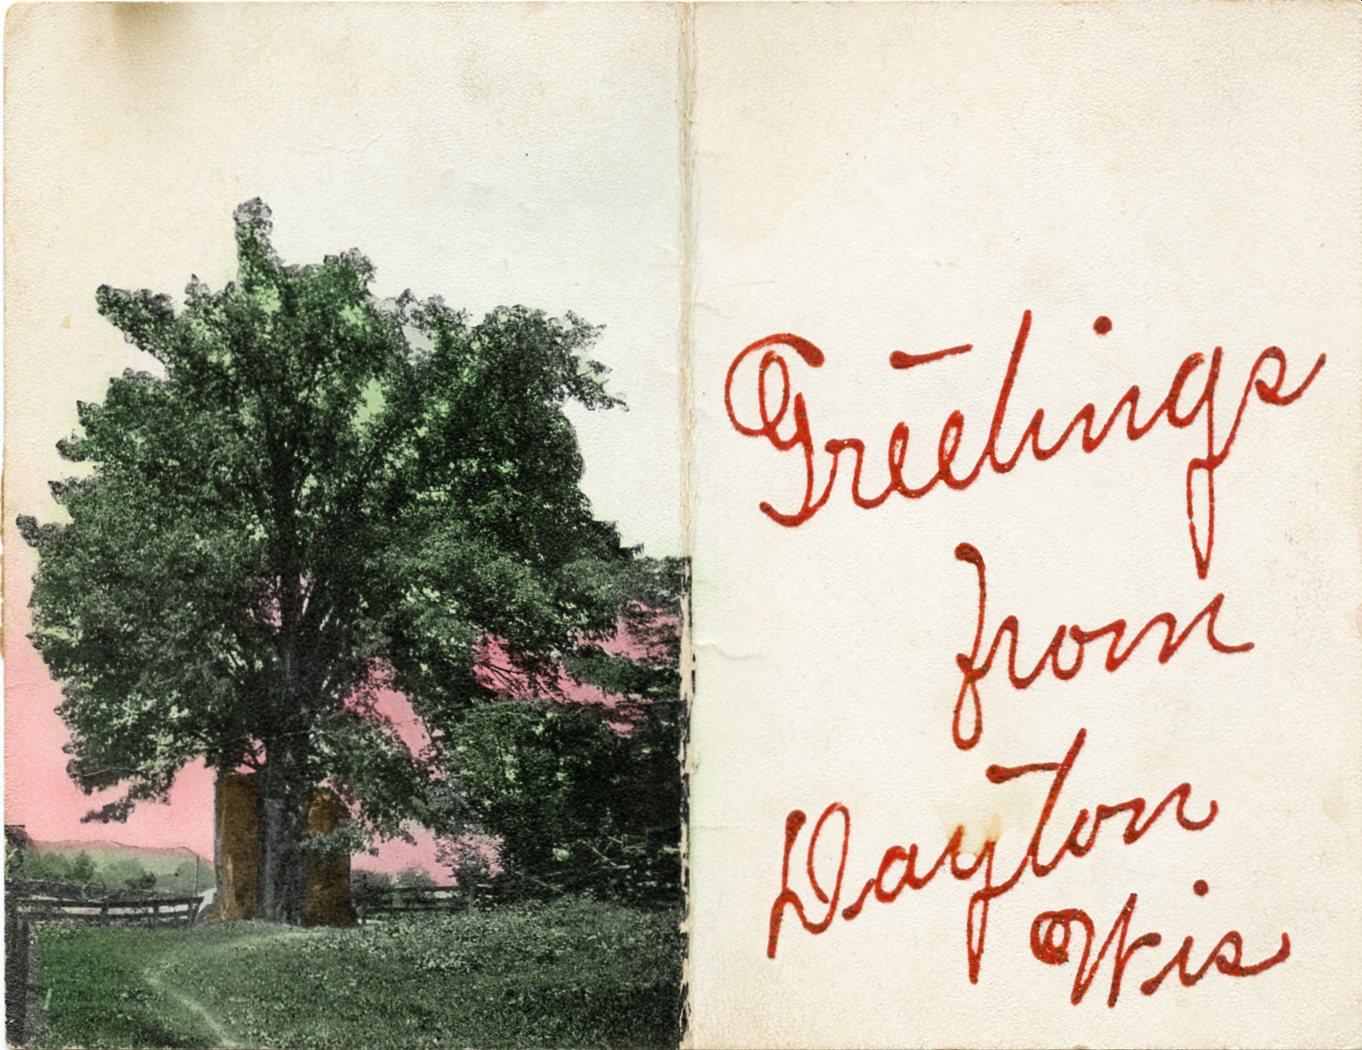 Greetings
from
Dayton
Wis